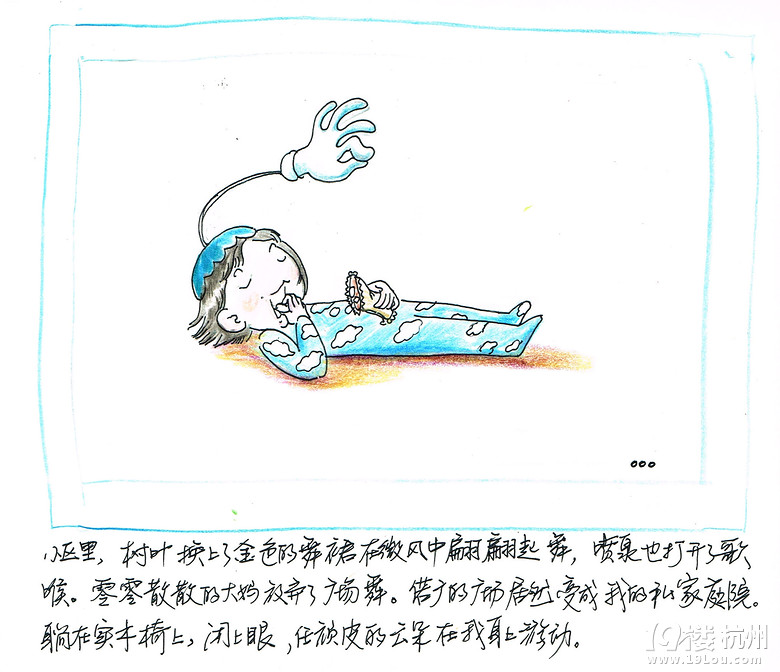 小区里，树叶换上了金色的舞裙在微风中翩翩起舞，喷泉也打开了歌
喉。零零散散的大妈放弃了广场舞。偌大的广场居然变成我的私家庭院。
躺在实木椅上，闭上眼，任顽皮的云朵在我身上游动。
19楼杭州
www.19lou.com